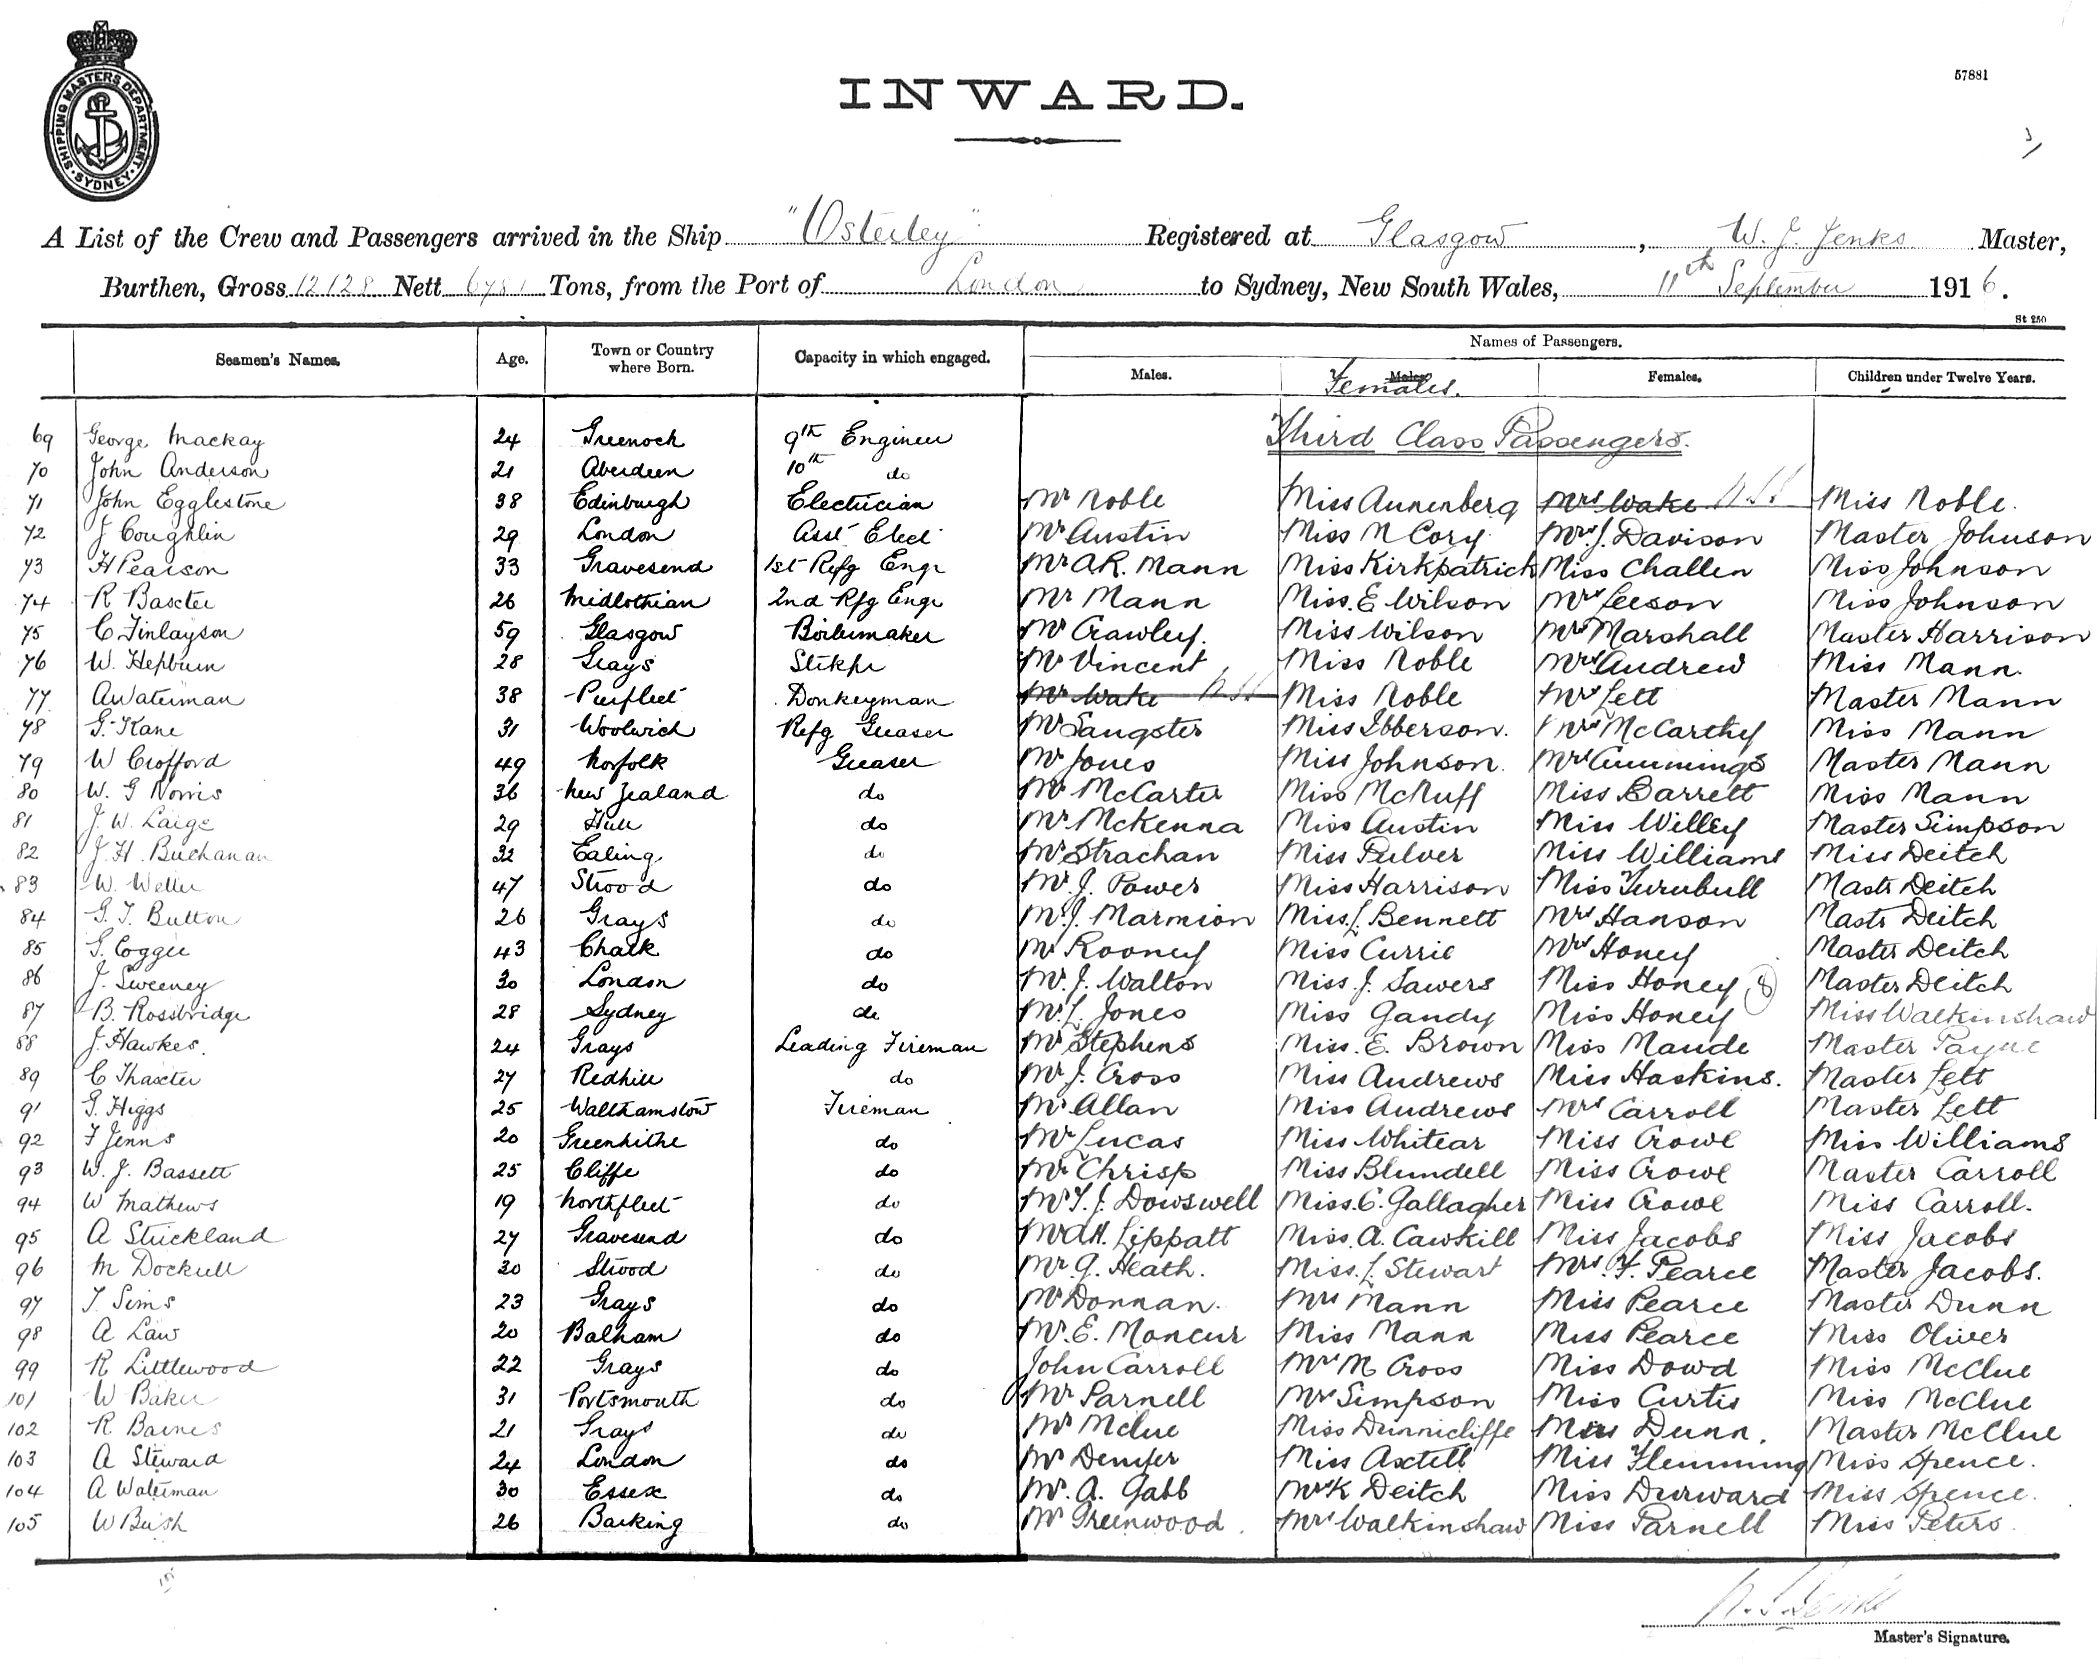 SHIPPING MASTERS DEPARTMENT · SYDNEY ·
57881
INWARD.
A List of the Crew and Passengers arrived in the Ship "Osterley" Registered at Glasgow, W. J. Jenks Master,
Burthen, Gross 12128 Nett 6781 Tons, from the Port of London to Sydney, New South Wales, 11th September 1916.
St 250
Seamen's Names. Age. Town or Country where Born. Capacity in which engaged. Names of Passengers.
Males. Males. Females. Females. Children under Twelve Years.
Third Class Passengers.
69 George Mackay 24 Greenock 9th Engineer
70 John Anderson 21 Aberdeen 10th do
71 John Egglestone 38 Edinburgh Electrician Mr Noble Miss Annenberg Mrs Wake Miss Noble.
72 J Coughlin 29 London Asst Elect Mr Austin Miss N Cory Mrs J. Davison Master Johnson
73 H Pearson 33 Gravesend 1st Refg Engr Mr A.R. Mann Miss Kirkpatrick Miss Challen Miss Johnson
74 R Baxter 26 Midlothian 2nd Rfg Engr Mr Mann Miss. E Wilson Mrs Leeson Miss Johnson
75 C Finlayson 59 Glasgow Boilermaker Mr Crawley. Miss Wilson Mrs Marshall Master Harrison
76 W. Hepburn 28 Grays Stkpr Mr Vincent Miss Noble Mrs Andrew Miss Mann
77 A Waterman 38 Purfleet Donkeyman Mr Wake Miss Noble Mrs Lett Master Mann
78 G. Kane 31 Woolwich Refg Greaser Mr Sangster Miss Ibberson. Mrs McCarthy Miss Mann
79 W Crofford 49 Norfolk Greaser Mr Jones Miss Johnson. Mrs Cummings Master Mann
80 W. G Norris 36 New Zealand do Mr McCarter Miss McNuff Miss Barrett Miss Mann
81 J. W. Laige 29 Hull do Mr McKenna Miss Austin Miss Willey Master Simpson
82 J. H. Buchanan 32 Ealing do Mr Strachan Miss Pulver Miss Williams Miss Deitch
83 W. Weller 47 Strood do Mr. J. Power Miss Harrison Miss Turnbull Mastr Deitch
84 G. T. Button 26 Grays do Mr. J. Marmion Miss. L. Bennett Mrs Hanson Mastr Deitch
85 G. Cogger 43 Chalk do Mr Rooney Miss Currie Mrs Honey Master Deitch
86 J. Sweeney 30 London do Mr. J. Walton Miss. J. Sawers Miss Honey Master Deitch
87 B. Rossbridge 28 Sydney do Mr. L. Jones Miss Gandy Miss Honey Miss Walkinshaw
88 J. Hawkes. 24 Grays Leading Fireman Mr Stephens Miss. E. Brown Miss Maude Master Payne
89 C Thaxter 27 Redhill do Mr. J. Cross Miss Andrews Miss Haskins. Master Lett
91 G. Higgs 25 Walthamstow Fireman Mr Allan Miss Andrews Mrs Carroll Master Lett
92 F Jenns 20 Greenhithe do Mr Lucas Miss Whitear Miss Crowe Miss Williams
93 W. J. Bassett 25 Cliffe do Mr Chrisp Miss Blundell Miss Crowe Master Carroll
94 W Mathews 19 Northfleet do Mr T. J. Dowswell Miss. C. Gallagher Miss Crowe Miss Carroll.
95 A Strickland 27 Gravesend do Mr A.H. Lippatt Miss. A. Cawkill Miss Jacobs Miss Jacobs
96 M Dockrell 30 Strood do Mr. G. Heath. Miss. L. Stewart Mrs. F. Pearce Master Jacobs.
97 T. Sims 23 Grays do Mr Donnan. Mrs Mann Miss Pearce Master Dunn
98 A Law 20 Balham do Mr. E. Moncur Miss Mann Miss Pearce Miss Oliver
99 R Littlewood 22 Grays do John Carroll Mrs M Cross Miss Dowd Miss McClue
101 W Baker 31 Portsmouth do Mr Parnell Mrs Simpson Miss Curtis Miss McClue
102 R Barnes 21 Grays do Mr Mclue Miss Dunnicliffe Miss Dunn. Master McClue
103 A Steward 24 London do Mr Miss Axtell Miss Flemming Miss Spence.
104 A Waterman 30 Essex do Mr. A. Gabb Mrs K Deitch Miss Durward Miss Spence.
105 W Bush 26 Barking do Mr Greenwood. Mrs Walkinshaw Miss Parnell Miss Peters.
Master's Signature.